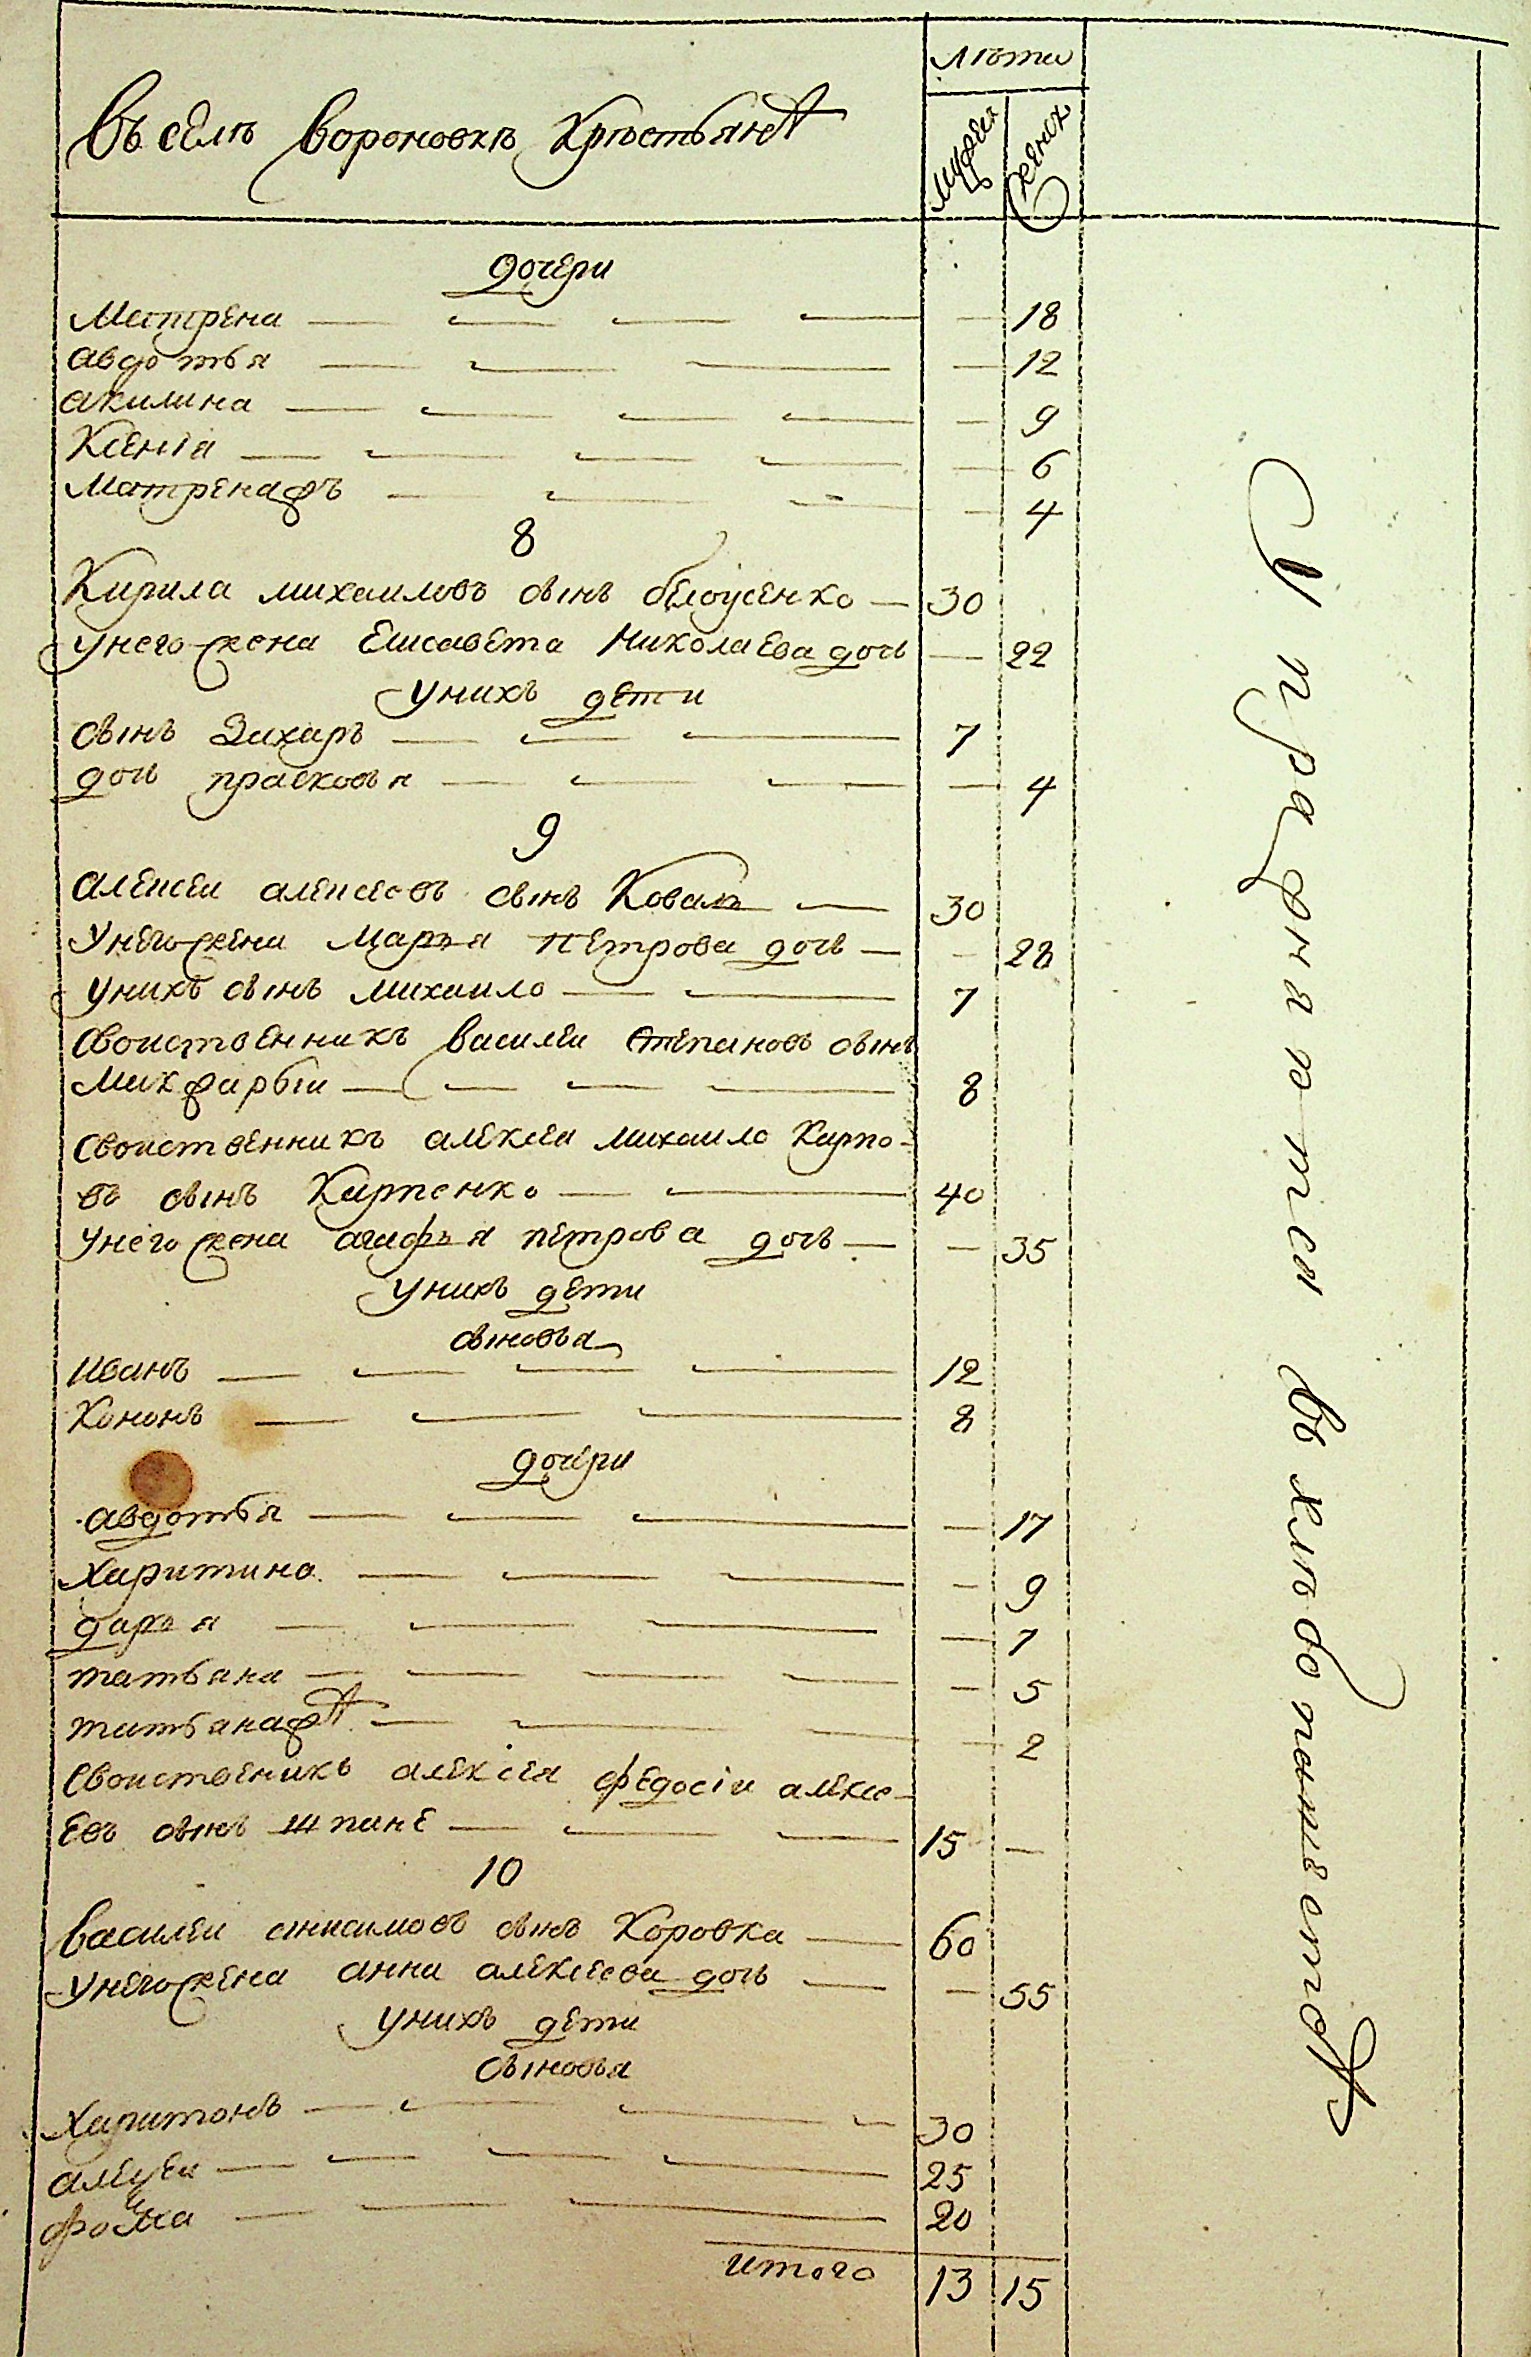 въ селѣ Вороновкѣ крѣстьянъ
лѣта
мужеск
женск
дочери
Матрена 18
авдотья 12
акилина 9
Ксенія 6
Матрена ж 4
8
Кирила михаиловъ сынъ белоусенко 30
у него жена Елисавета Николаева дочь 22
у нихъ дети
сынъ Захаръ 7
дочь прасковья 4
9
алексеи алексеевъ сынъ Коваль 30
У него жена Марья Петрова дочь 28
у нихъ сынъ михаило 7
Своиственникъ василеи Степановъ сынъ
8
своиственникъ алексеи михаило Карпо-
въ сынъ Карпенко 40
у него жена агафья петрова дочь 35
у нихъ дети
сыновья
иванъ 12
Кононъ 8
дочери
авдотья 17
харитина 9
дарья 7
татьяна 5
татьяна ж 2
Своиственикъ алексея федосіи алексе-
евъ сынъ шпане 15
10
василеи анисимовъ сынъ Коровка 60
у него жена анна алексеева дочь 55
у нихъ дети
сыновья
Харитонъ 30
алексеи 25
фома 20
итого 13 15
Упражняются въ хлѣбопашестве